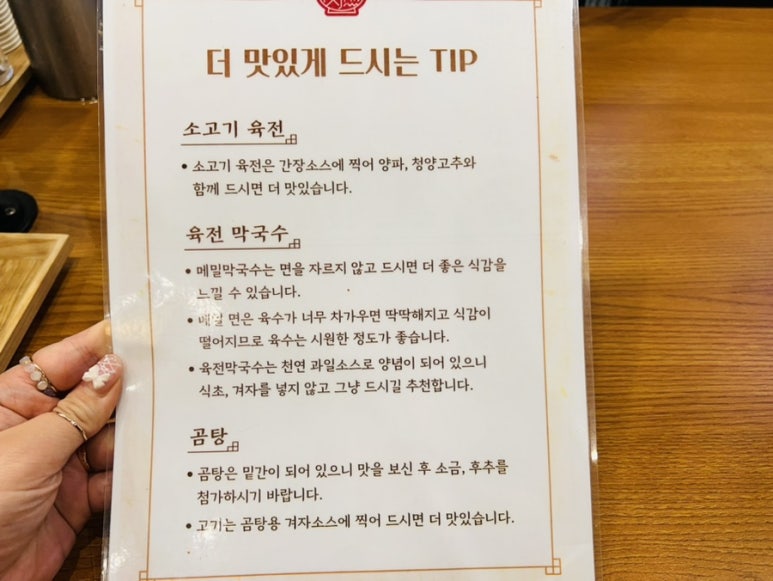 더 맛있게 드시는 TIP
소고기 육전
• 소고기 육전은 간장소스에 찍어 양파, 청양고추와
함께 드시면 더 맛있습니다.
육전 막국수
• 메밀막국수는 면을 자르지 않고 드시면 더 좋은 식감을
느낄 수 있습니다.
• 메밀 면은 육수가 너무 차가우면 딱딱해지고 식감이
떨어지므로 육수는 시원한 정도가 좋습니다.
• 육전막국수는 천연 과일소스로 양념이 되어 있으니
식초, 겨자를 넣지 않고 그냥 드시길 추천합니다.
곰탕
• 곰탕은 밑간이 되어 있으니 맛을 보신 후 소금, 후추를
첨가하시기 바랍니다.
• 고기는 곰탕용 겨자소스에 찍어 드시면 더 맛있습니다.